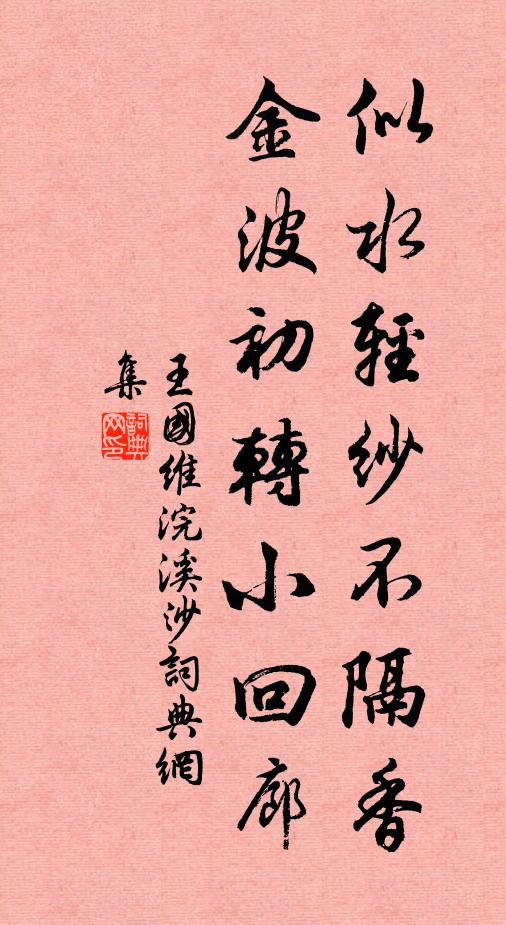 似水輕紗不隔香
金波初轉小回廊
王國維浣溪沙詞典網
集
詞典网印